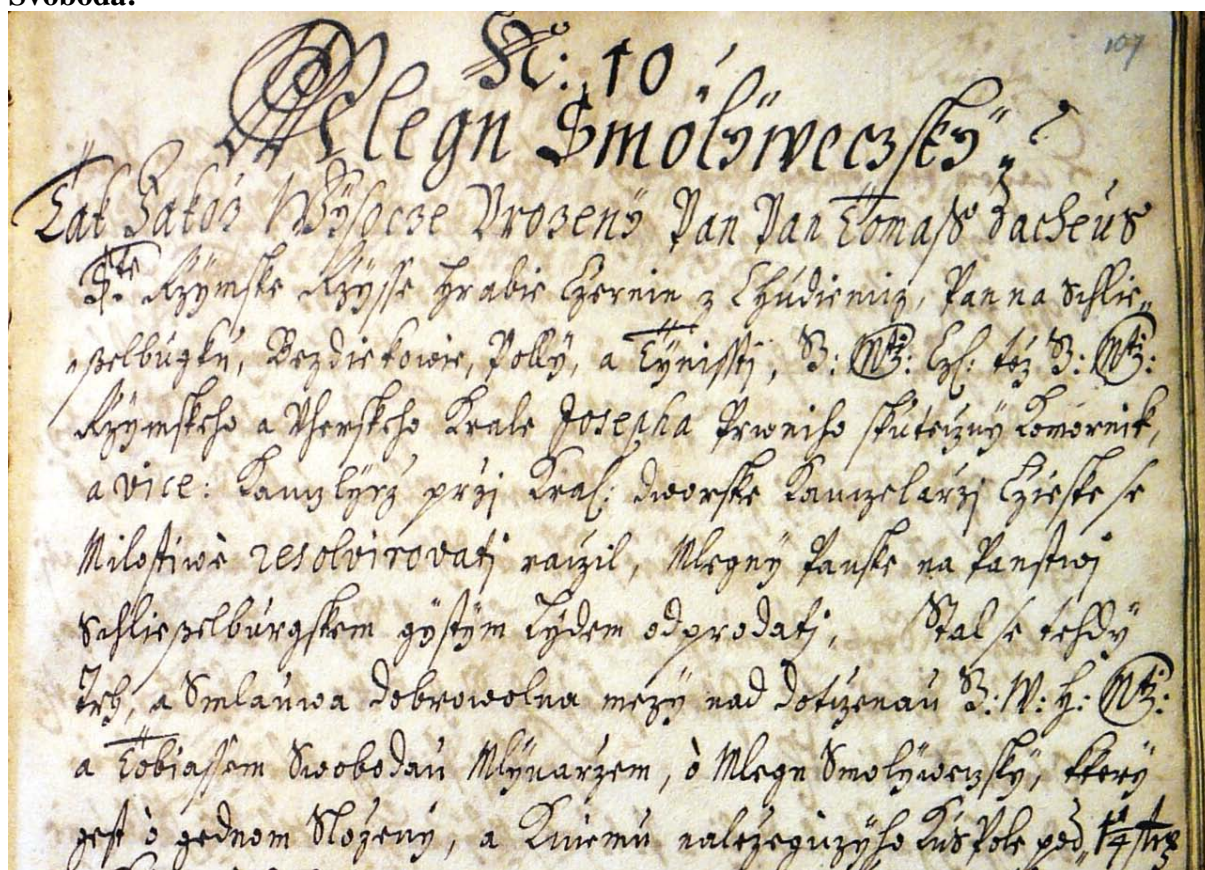 Svoboda:
107
N: 10
Mlegn Smolyweczsky
Tak Jakoz Wysocze Urozeny Pan Pan Tomass Zacheus
Ste Rzymske Rzysse Hrabie Czernin z Chudieniz, Pan na Schlie„
„ßelburgku, Bezdiekowie, Polly, a Tynisstj, G: Mti: Cys: toz G: Mti:
Rzymskeho a Uherskeho Krale Josepha Prwniho skuteczny Komornik,
a vice: Kanczlyrz przj Kral: dworske Kanczelarzj Czieske se
Milostiwě resolvirovatj raczil, Mlegny Panske na Panstwj
Schließelburgskem gystym Lydem odprodatj, Stal se tehdy
Trh, a Smlauwa dobrowolna mezy nad dotczenau G: W: H: Mti:
a Tobiassem Swobodau Mlynarzem, o Mlegn Smolywenzsky, ktery
gest o gednom Slozeny, a Kniemu nalezegiczyho Kus Pole pod 1/4